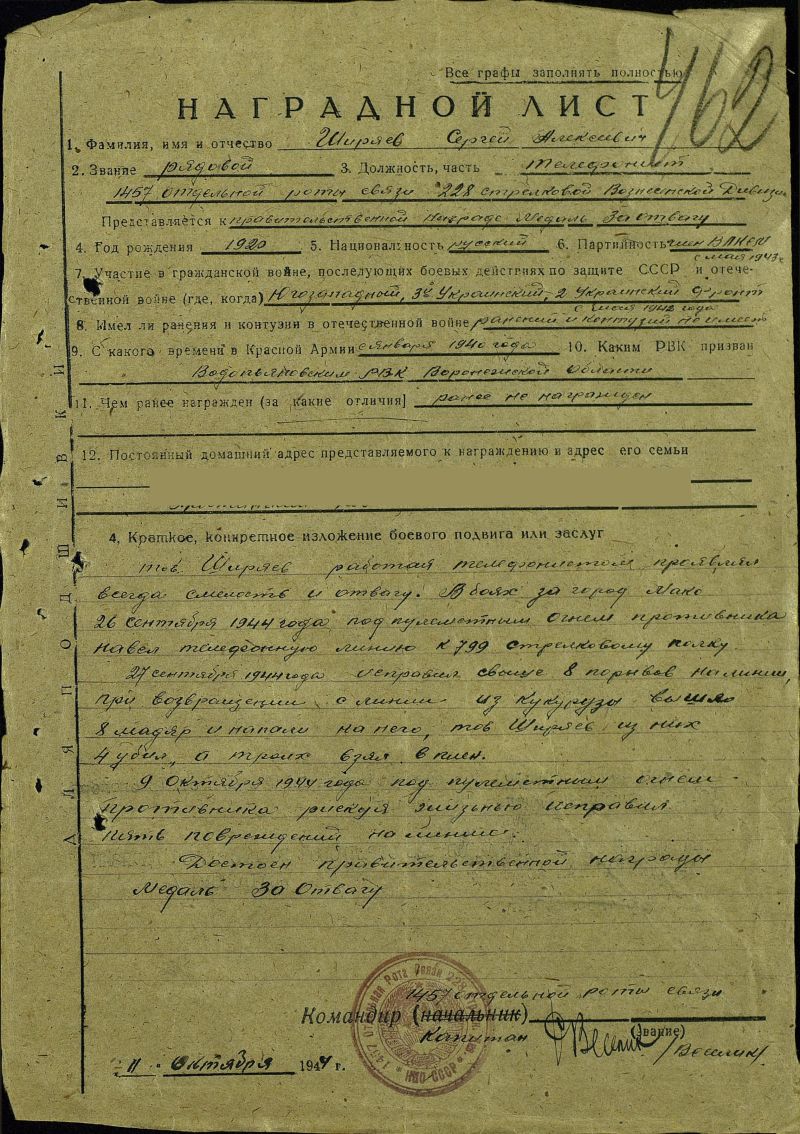 462
Все графы заполнять полностью
НАГРАДНОЙ ЛИСТ
1. Фамилия, имя и отчество Ширяев Сергей Алексеевич
2. Звание рядовой 3. Должность, часть телефонист
1457 отдельной роты связи 228 стрелковой Вознесенской Дивизии
Представляется к правительственной награде Медаль За отвагу
4. Год рождения 1920 5. Национальность русский 6. Партийность член ВЛКСМ
с мая 1943г
7. Участие в гражданской войне, послелующих боевых действиях по защите СССР и отече-
ственной войне (где, когда) Югозападный, 3й Украинский, 2 Украинский фронт
с июля 1942 года
8. Имел ли ранения и контузии в отечественной войне ранений и контузий не имеет
9. С какого времени в Красной Армии с января 1940 года 10. Каким РВК призван
Водопьяновским РВК Воронежской области
11. Чем ранее награжден (за какие отличия) ранее не награжден
12. Постоянный домашний адрес представляемого к награждению и адрес его семьи
4, Краткое, конкретное изложение боевого подвига или заслуг
тов. Ширяев работая телефонистом проявлял
всегда смелость и отвагу. В боях за город Мако
26 сентября 1944 года под пулеметным огнем противника
навел телефонную линию к 799 стрелковому полку.
27 сентября 1944 года исправил свыше 8 порывов на линии,
при возвращении с линии из кукурузы вышло
8 мадяр и напали на него, тов Ширяев из них
4 убил, а троих взял в плен.
9 Октября 1944 года под пулеметным огнем
противника рискуя жизнью исправил
пять повреждений на линии.
Достоен правительственной награды
Медаль За Отвагу
1457 отдельной роты связи
Командир (начальник)
Капитан (звание) /Веселик/
11 Октября 1944 г.
1457 Отдельная Рота Связи 228
НКО СССР
ДЛЯ ПОДШИВКИ